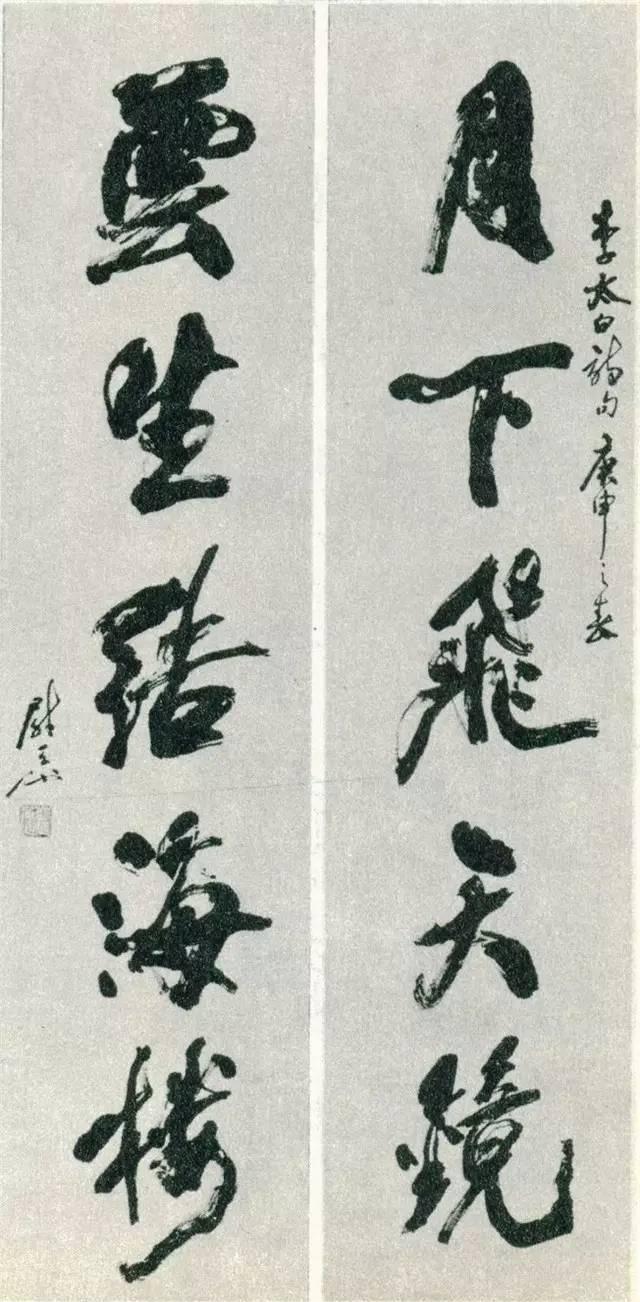 月下飛天鏡
李太白詩句 庚申之春
雲生結海樓
尉天池